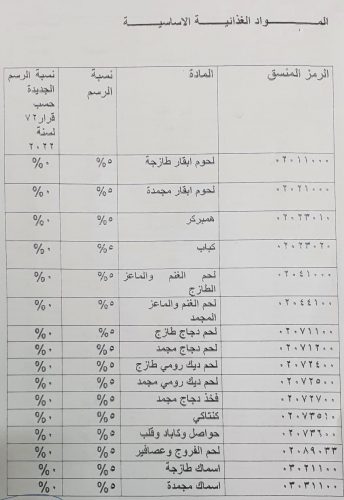 المــــواد الغذائيــة الاساسيــة
الرمز المنسق المادة نسبة الرسم نسبة الرسم الجديدة حسب قرار ٧٢ لسنة ٢٠٢٢
٠٢٠١١٠٠٠ لحوم ابقار طازجة ٥% ٠%
٠٢٠٢١٠٠٠ لحوم ابقار مجمدة ٥% ٠%
٠٢٠٢٣٠١٠ همبركر ٥% ٠%
٠٢٠٢٣٠٢٠ كباب ٥% ٠%
٠٢٠٤١٠٠٠ لحم الغنم والماعز الطازج ٥% ٠%
٠٢٠٤٤١٠٠ لحم الغنم والماعز المجمد ٥% ٠%
٠٢٠٧١١٠٠ لحم دجاج طازج ٥% ٠%
٠٢٠٧١٢٠٠ لحم دجاج مجمد ٥% ٠%
٠٢٠٧٢٤٠٠ لحم ديك رومي طازج ٥% ٠%
٠٢٠٧٢٥٠٠ لحم ديك رومي مجمد ٥% ٠%
٠٢٠٧٢٧٠٠ فخذ دجاج مجمد ٥% ٠%
٠٢٠٧٣٥١٠ كنتاكي ٥% ٠%
٠٢٠٧٣٦٠٠ حواصل وكاباد وقلب ٥% ٠%
٠٢٠٨٩٠٣٣ لحم الفروج وعصافير ٥% ٠%
٠٣٠٢١١٠٠ اسماك طازجة ٥% ٠%
٠٣٠٣١١٠٠ اسماك مجمدة ٥% ٠%